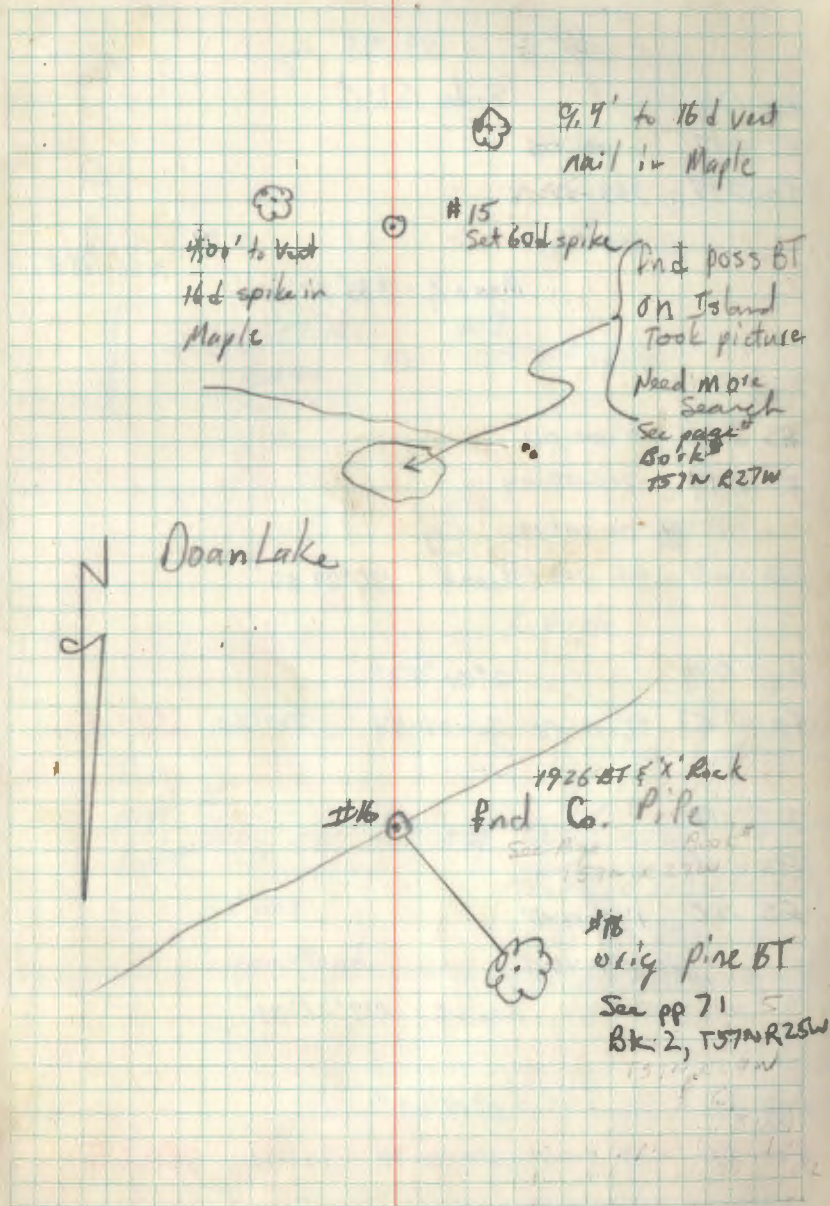 9.9' to 16d vert
nail in Maple
#15
Set 60d spike
to Vert
16d spike in
Maple
fnd poss BT
on Island
Took picture
Need more
Search
See page#
Book#
T57N R27W
N
Doan Lake
1926 BT & 'X' Rock
#16
fnd Co. PiPe
See Page Book#
T57N R27W
orig pine BT
See pp 71
Bk. 2, T57N R25W